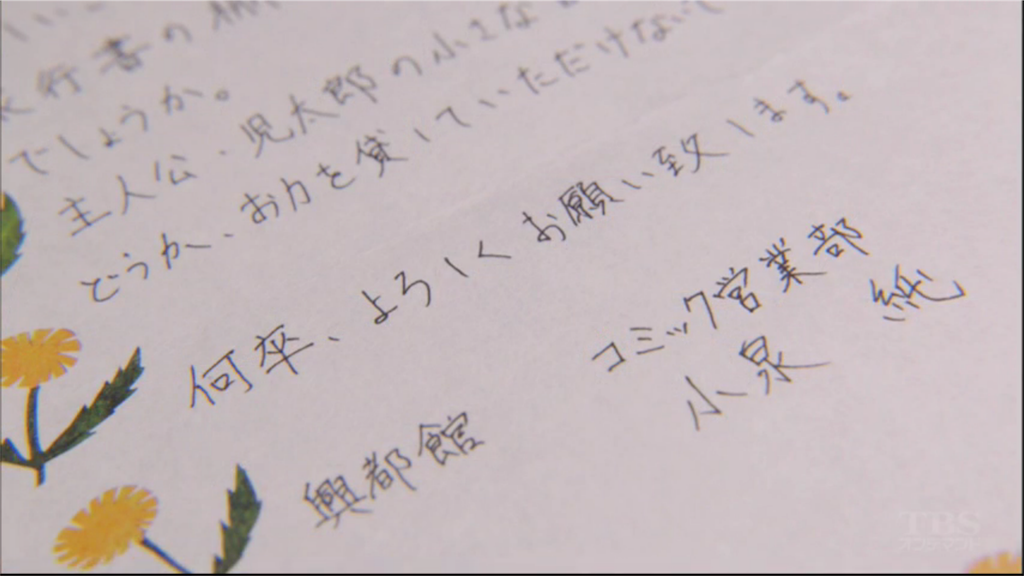 行者の
でしょうか。
主人公・児太郎の小さな
どうか、お力を貸していただけない
何卒、よろしくお願い致します。
興都館
コミック営業部
小泉 純
TBS
オンデマンド